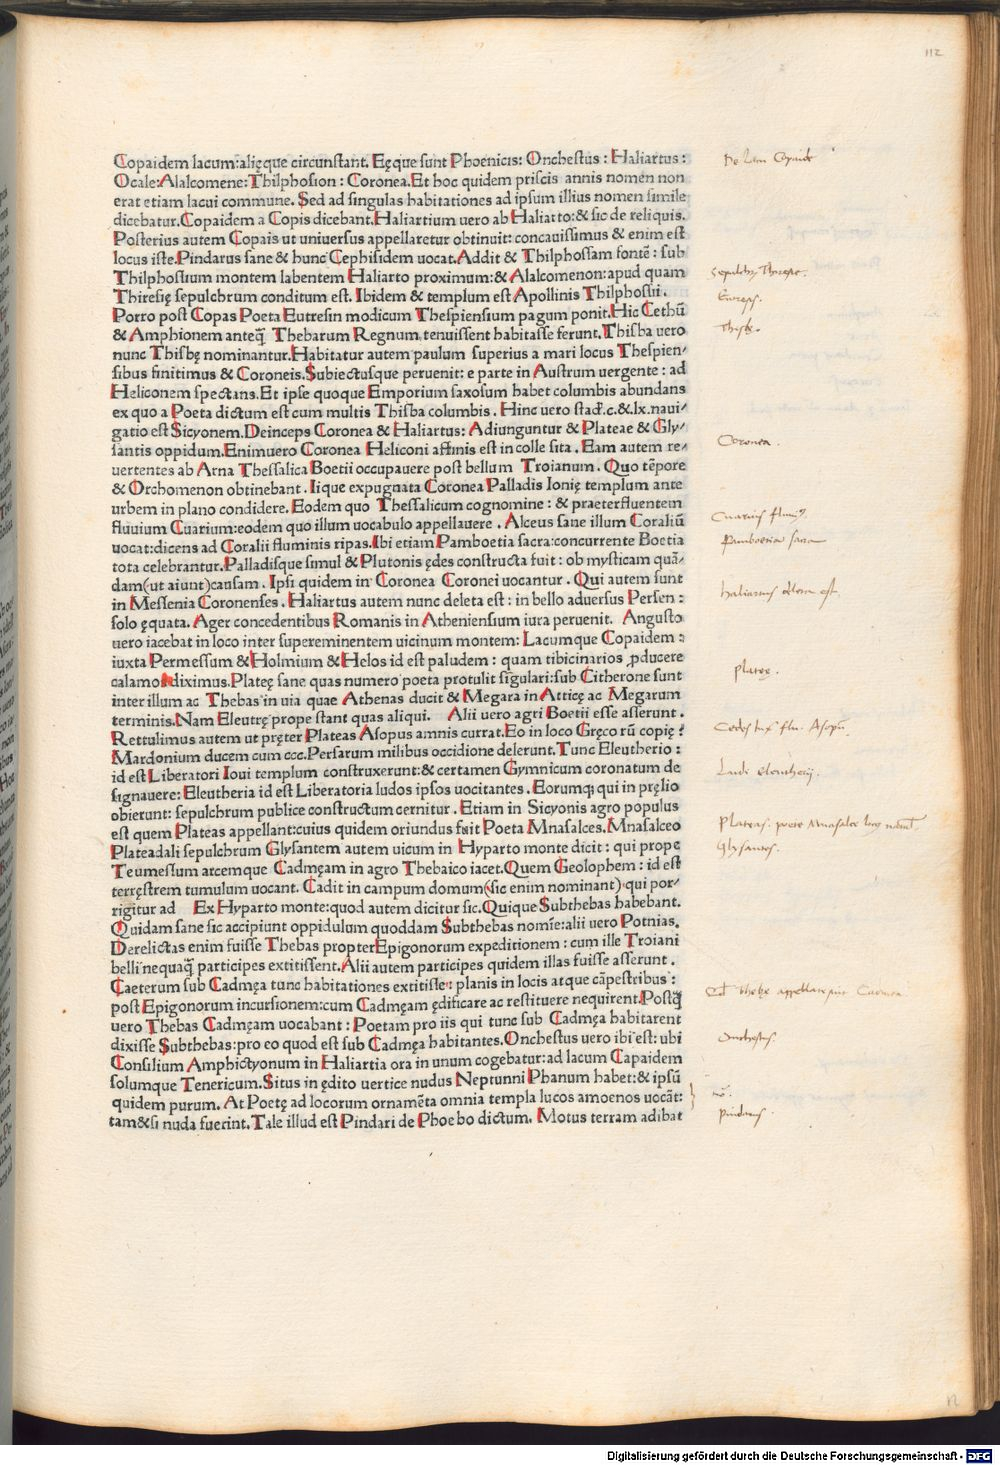 112
Copaidem lacum:alięque circunstant. Eęque sunt Phoenicis: Onchestus : Haliartus :
Ocale:Alalcomene:Thilphosion : Coronea.Et hoc quidem priscis annis nomen non
erat etiam lacui commune. Sed ad singulas habitationes ad ipsum illius nomen simile
dicebatur.Copaidem a Copis dicebant.Haliartium uero ab Haliarto:& sic de reliquis.
Posterius autem Copais ut uniuersus appellaretur obtinuit: concauissimus & enim est
locus iste.Pindarus sane & hunc Cephisidem uocat.Addit & Thilphossam fontē : sub
Thilphossium montem labentem Haliarto proximum:& Alalcomenon:apud quam
Thiresię sepulchrum conditum est. Ibidem & templum est Apollinis Thilphossii.
Porro post Copas Poeta Eutresin modicum Thespiensium pagum ponit.Hic Cethū
& Amphionem anteq̄ Thebarum Regnum tenuissent habitasse ferunt.Thisba uero
nunc Thisbę nominantur.Habitatur autem paulum superius a mari locus Thespien⸗
sibus finitimus & Coroneis.Subiectusque peruenit: e parte in Austrum uergente : ad
Heliconem spectans.Et ipse quoque Emporium saxosum habet columbis abundans
ex quo a Poeta dictum est cum multis Thisba columbis. Hinc uero stad̄.c.&.lx.naui⸗
gatio est Sicyonem.Deinceps Coronea & Haliartus: Adiunguntur & Plateae & Gly⸗
santis oppidum.Enimuero Coronea Heliconi affinis est in colle sita. Eam autem re⸗
uertentes ab Arna Thessalica Boetii occupauere post bellum Troianum. Quo tēpore
& Orchomenon obtinebant. Iique expugnata Coronea Palladis Ionię templum ante
urbem in plano condidere. Eodem quo Thessalicum cognomine : & praeterfluentem
fluuium Cuarium:eodem quo illum uocabulo appellauere. Alceus sane illum Coraliū
uocat:dicens ad Coralii fluminis ripas.Ibi etiam Pamboetia sacra:concurrente Boetia
tota celebrantur.Palladisque simul & Plutonis ędes constructa fuit: ob mysticam quā⸗
dam(ut aiunt)causam. Ipsi quidem in Coronea Coronei uocantur. Qui autem sunt
in Messenia Coronenses. Haliartus autem nunc deleta est: in bello aduersus Persen:
solo ęquata. Ager concedentibus Romanis in Atheniensium iura peruenit. Angusto
uero iacebat in loco inter supereminentem uicinum montem: Lacumque Copaidem :
iuxta Permessum & Holmium & Helos id est paludem: quam tibicinarios ꝓducere
calamos diximus.Plateę sane quas numero poeta protulit singulari:sub Citherone sunt
inter illum ac Thebas in uia quae Athenas ducit & Megara in Atticę ac Megarum
terminis.Nam Eleutrę prope stant quas aliqui. Alii uero agri Boetii esse asserunt.
Rettulimus autem ut pręter Plateas Asopus amnis currat.Eo in loco Gręco rū copię?
Mardonium ducem cum ccc.Persarum milibus occidione delerunt.Tunc Eleutherio :
id est Liberatori Ioui templum construxerunt:& certamen Gymnicum coronatum de
signauere: Eleutheria id est Liberatoria ludos ipsos uocitantes. Eorumq; qui in pręlio
obierunt: sepulchrum publice constructum cernitur. Etiam in Sicyonis agro populus
est quem Plateas appellant:cuius quidem oriundus fuit Poeta Mnasalces.Mnasalceo
Plateadali sepulchrum Glysantem autem uicum in Hyparto monte dicit : qui prope
Teumesium arcemque Cadmęam in agro Thebaico iacet.Quem Geolophem : id est
terręstrem tumulum uocant. Cadit in campum domum(sic enim nominant) qui por⸗
rigitur ad Ex Hyparto monte:quod autem dicitur sic.Quique Subthebas habebant.
Quidam sane sic accipiunt oppidulum quoddam Subthebas nomīe:alii uero Potnias.
Derelictas enim fuisse Thebas propter Epigonorum expeditionem : cum ille Troiani
belli nequaq̄ participes extitissent.Alii autem participes quidem illas fuisse asserunt.
Caeterum sub Cadmęa tunc habitationes extitisse: planis in locis atque cāpestribus :
post Epigonorum incursionem:cum Cadmęam ędificare ac restituere nequirent.Postq̄
uero Thebas Cadmęam uocabant : Poetam pro iis qui tunc sub Cadmęa habitarent
dixisse Subthebas:pro eo quod est sub Cadmęa habitantes.Onchestus uero ibi est: ubi
Consilium Amphictyonum in Haliartia ora in unum cogebatur:ad lacum Capaidem
solumque Tenericum.Situs in ędito uertice nudus Neptunni Phanum habet:& ipsū
quidem purum. At Poetę ad locorum ornamēta omnia templa lucos amoenos uocāt:
tam&si nuda fuerint. Tale illud est Pindari de Phoebo dictum. Motus terram adibat
Thisbe.
Coronea.
Cuarius
Haliartus
Plateę.
Ludi
Glysantes.
Onchestus.
Pindarus.
Digitalisierung gefördert durch die Deutsche Forschungsgemeinschaft - DFG